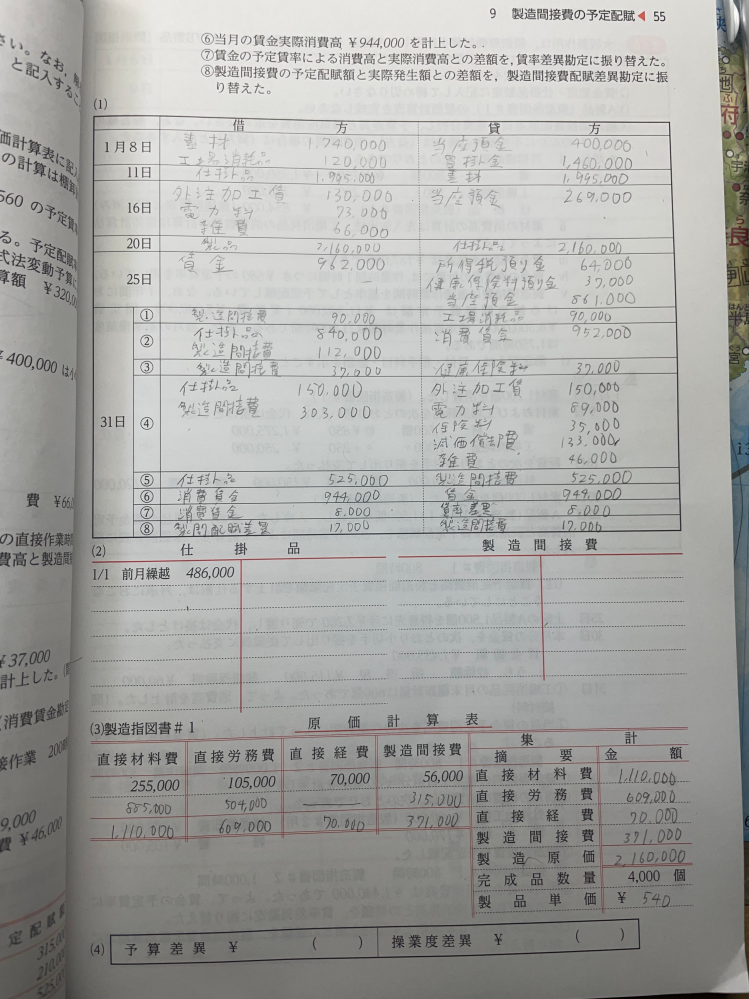 9　製造間接費の予定配賦 ◀ 55
⑥当月の賃金実際消費高 ¥944,000 を計上した。
⑦賃金の予定賃率による消費高と実際消費高との差額を,賃率差異勘定に振り替えた。
⑧製造間接費の予定配賦額と実際発生額との差額を、製造間接費配賦差異勘定に振
り替えた。
(1)
借　方　貸　方
1月8日　素材　1,740,000　当座預金　400,000
工場消耗品　120,000　買掛金　1,460,000
11日　仕掛品　1,995,000　素材　1,995,000
16日　外注加工賃　130,000　当座預金　269,000
電力料　73,000
雑費　66,000
20日　製品　2,160,000　仕掛品　2,160,000
25日　賃金　962,000　所得税預り金　64,000
健康保険料預り金　37,000
当座預金　861,000
31日
①　製造間接費　90,000　工場消耗品　90,000
②　仕掛品　840,000　消費賃金　952,000
製造間接費　112,000
③　製造間接費　37,000　健康保険料　37,000
④　仕掛品　150,000　外注加工賃　150,000
製造間接費　303,000　電力料　89,000
保険料　35,000
減価償却費　133,000
雑費　46,000
⑤　仕掛品　525,000　製造間接費　525,000
⑥　消費賃金　944,000　賃金　944,000
⑦　消費賃金　8,000　賃率差異　8,000
⑧　製間配賦差異　17,000　製造間接費　17,000
(2)　仕　掛　品　製　造　間　接　費
1/1　前月繰越　486,000
(3)製造指図書＃1　原　価　計　算　表
直接材料費　直接労務費　直接経費　製造間接費　集　計
摘　要　金　額
255,000　105,000　70,000　56,000　直接材料費　1,110,000
885,000　504,000　―　315,000　直接労務費　609,000
1,110,000　609,000　70,000　371,000　直接経費　70,000
製造間接費　371,000
製造原価　2,160,000
完成品数量　4,000 個
製品単価　¥ 540
(4)　予算差異　¥　(　)　操業度差異　¥　(　)
560 の予定賃
算額　¥320,00
¥400,000 は
費　¥66,0
の直接作業時間
費高と製造間接
¥37,000
計上した。
消費賃金勘定
接作業　200時
9,000
費 ¥46,000
定配賦額
315,00
210,00
525,00